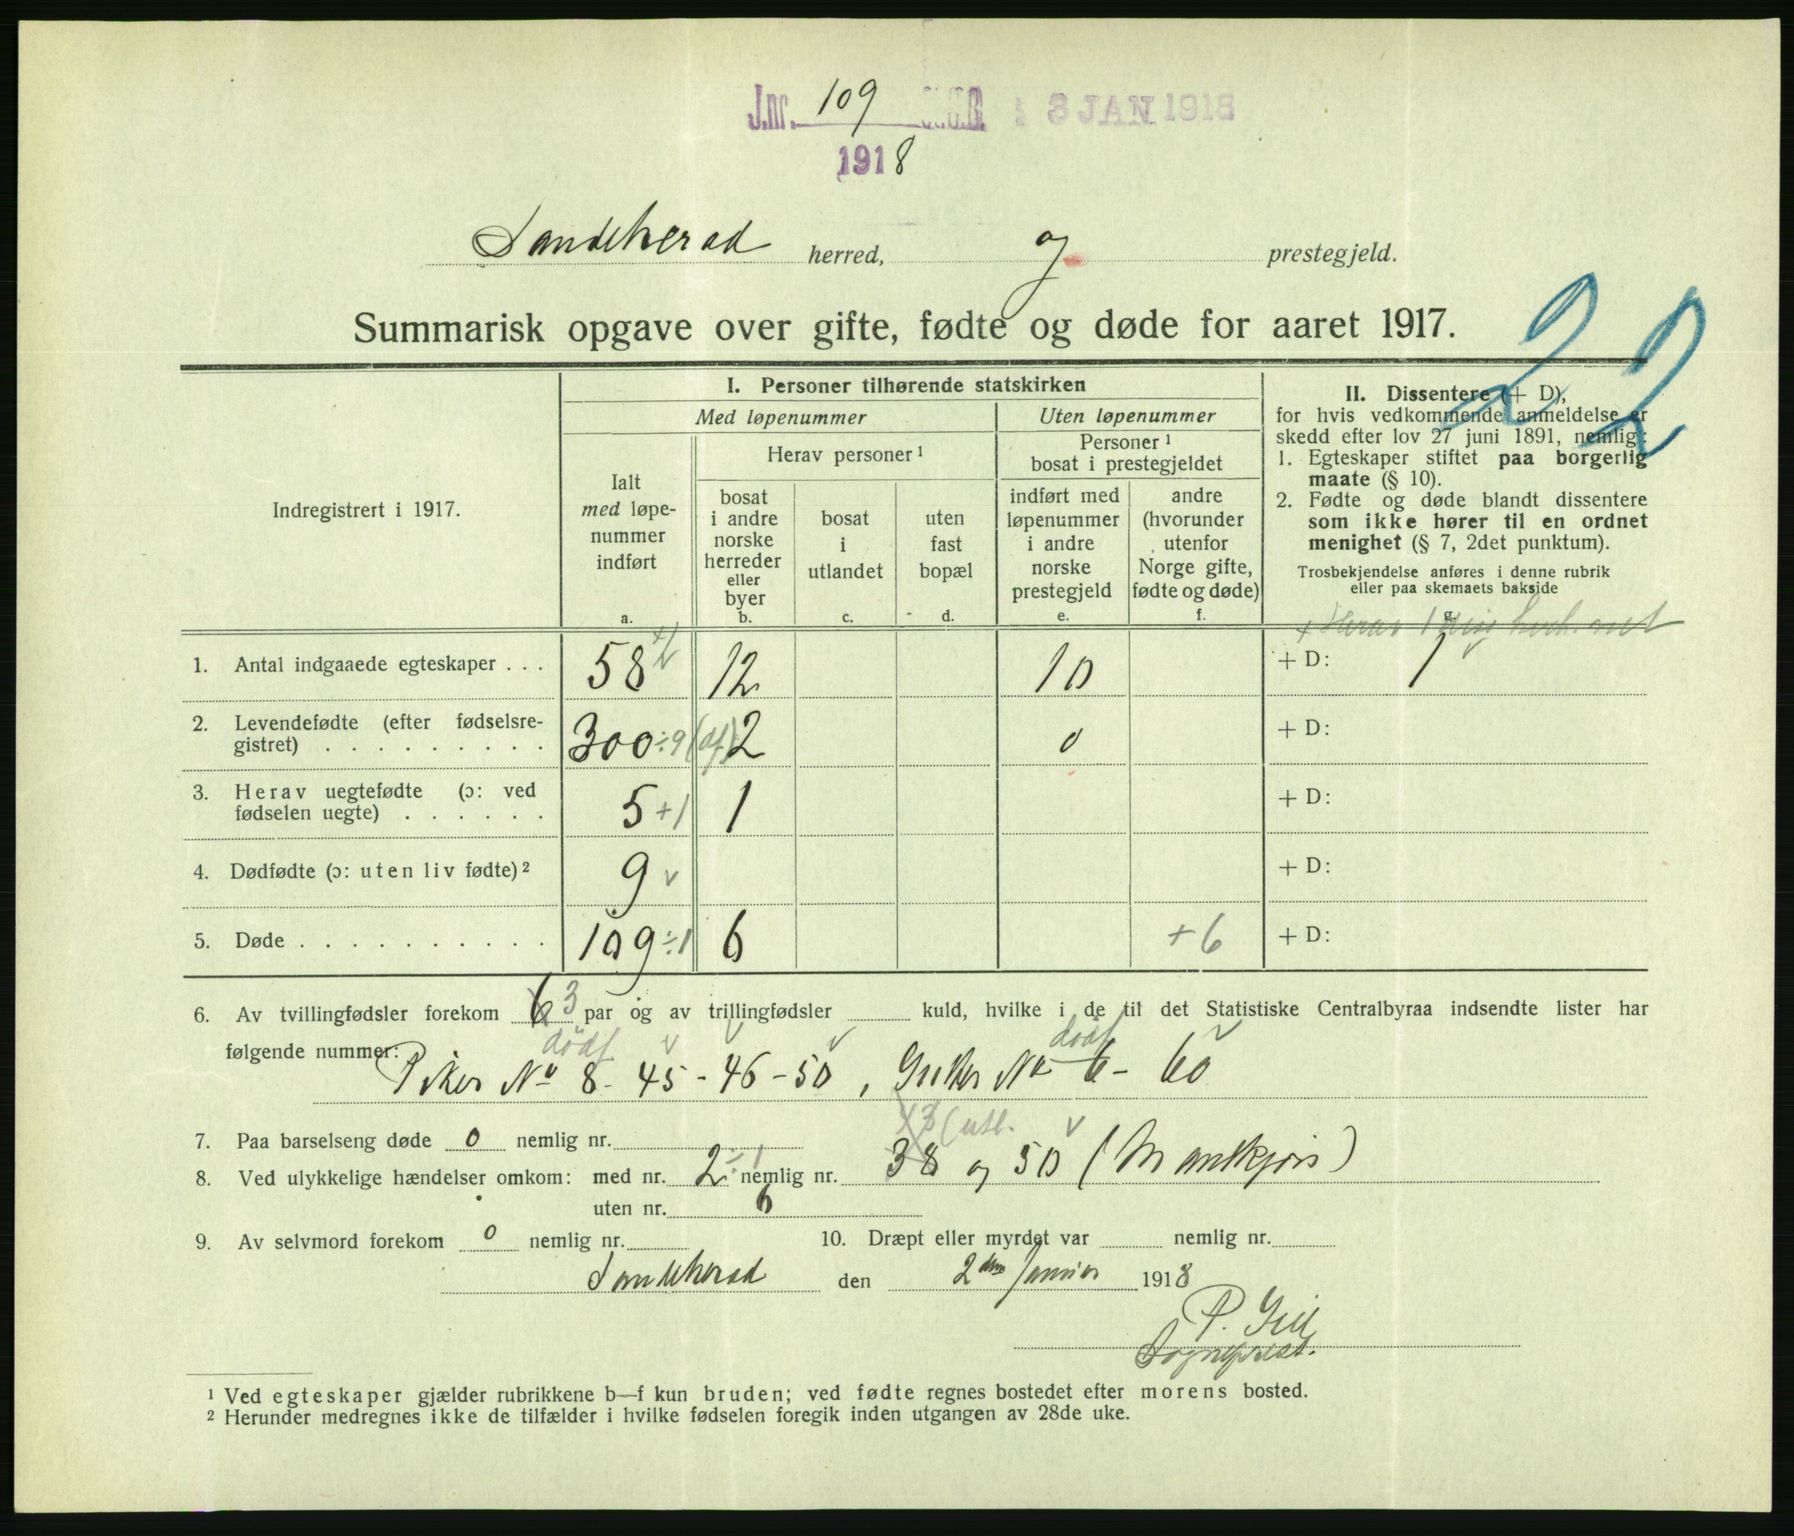 J.nr. 109 S.C.B. 8 JAN 1918
1918
Sandeherad herred, og prestegjeld.
Summarisk opgave over gifte, fødte og døde for aaret 1917.
22
Indregistrert i 1917.
I. Personer tilhørende statskirken
Med løpenummer
Uten løpenummer
Ialt
med løpe-
nummer
indført
a.
Herav personer ¹
bosat
i andre
norske
herreder
eller
byer
b.
bosat
i
utlandet
c.
uten
fast
bopæl
d.
Personer ¹
bosat i prestegjeldet
indført med
løpenummer
i andre
norske
prestegjeld
e.
andre
(hvorunder
utenfor
Norge gifte,
fødte og døde)
f.
II. Dissentere (+ D),
for hvis vedkommende anmeldelse er
skedd efter lov 27 juni 1891, nemlig:
1. Egteskaper stiftet paa borgerlig
maate (§ 10).
2. Fødte og døde blandt dissentere
som ikke hører til en ordnet
menighet (§ 7, 2det punktum).
Trosbekjendelse anføres i denne rubrik
eller paa skemaets bakside
g.
1. Antal indgaaede egteskaper . . . 58 12 10 + D: 1
2. Levendefødte (efter fødselsre-
gistret) . . . . . . . . . 300 ÷9 (df) 2 0 + D:
3. Herav uegtefødte (ɔ: ved
fødselen uegte) . . . . . . 5 +1 1 + D:
4. Dødfødte (ɔ: uten liv fødte) ² 9 v + D:
5. Døde . . . . . . . . . . 109 ÷1 6 +6 + D:
6. Av tvillingfødsler forekom 6 3 par og av trillingfødsler kuld, hvilke i de til det Statistiske Centralbyraa indsendte lister har
følgende nummer:
dödf. dödf
Piker No 8 - 45 - 46 - 50, Gutter No 6 - 60
7. Paa barselseng døde 0 nemlig nr.
8. Ved ulykkelige hændelser omkom: med nr. 2 ÷1 nemlig nr. 38 og 50 (Mandkjøn)
uten nr. 6
9. Av selvmord forekom 0 nemlig nr. 10. Dræpt eller myrdet var nemlig nr.
Sandeherad den 2den Januar 1918
P. Gill
Sogneprest.
¹ Ved egteskaper gjælder rubrikkene b—f kun bruden; ved fødte regnes bostedet efter morens bosted.
² Herunder medregnes ikke de tilfælder i hvilke fødselen foregik inden utgangen av 28de uke.